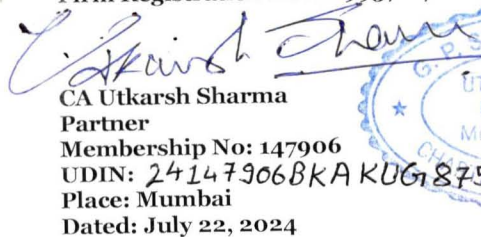 Utkarsh Sharma
CA Utkarsh Sharma
Partner
Membership No: 147906
UDIN: 24147906BKAKUG875
Place: Mumbai
Dated: July 22, 2024